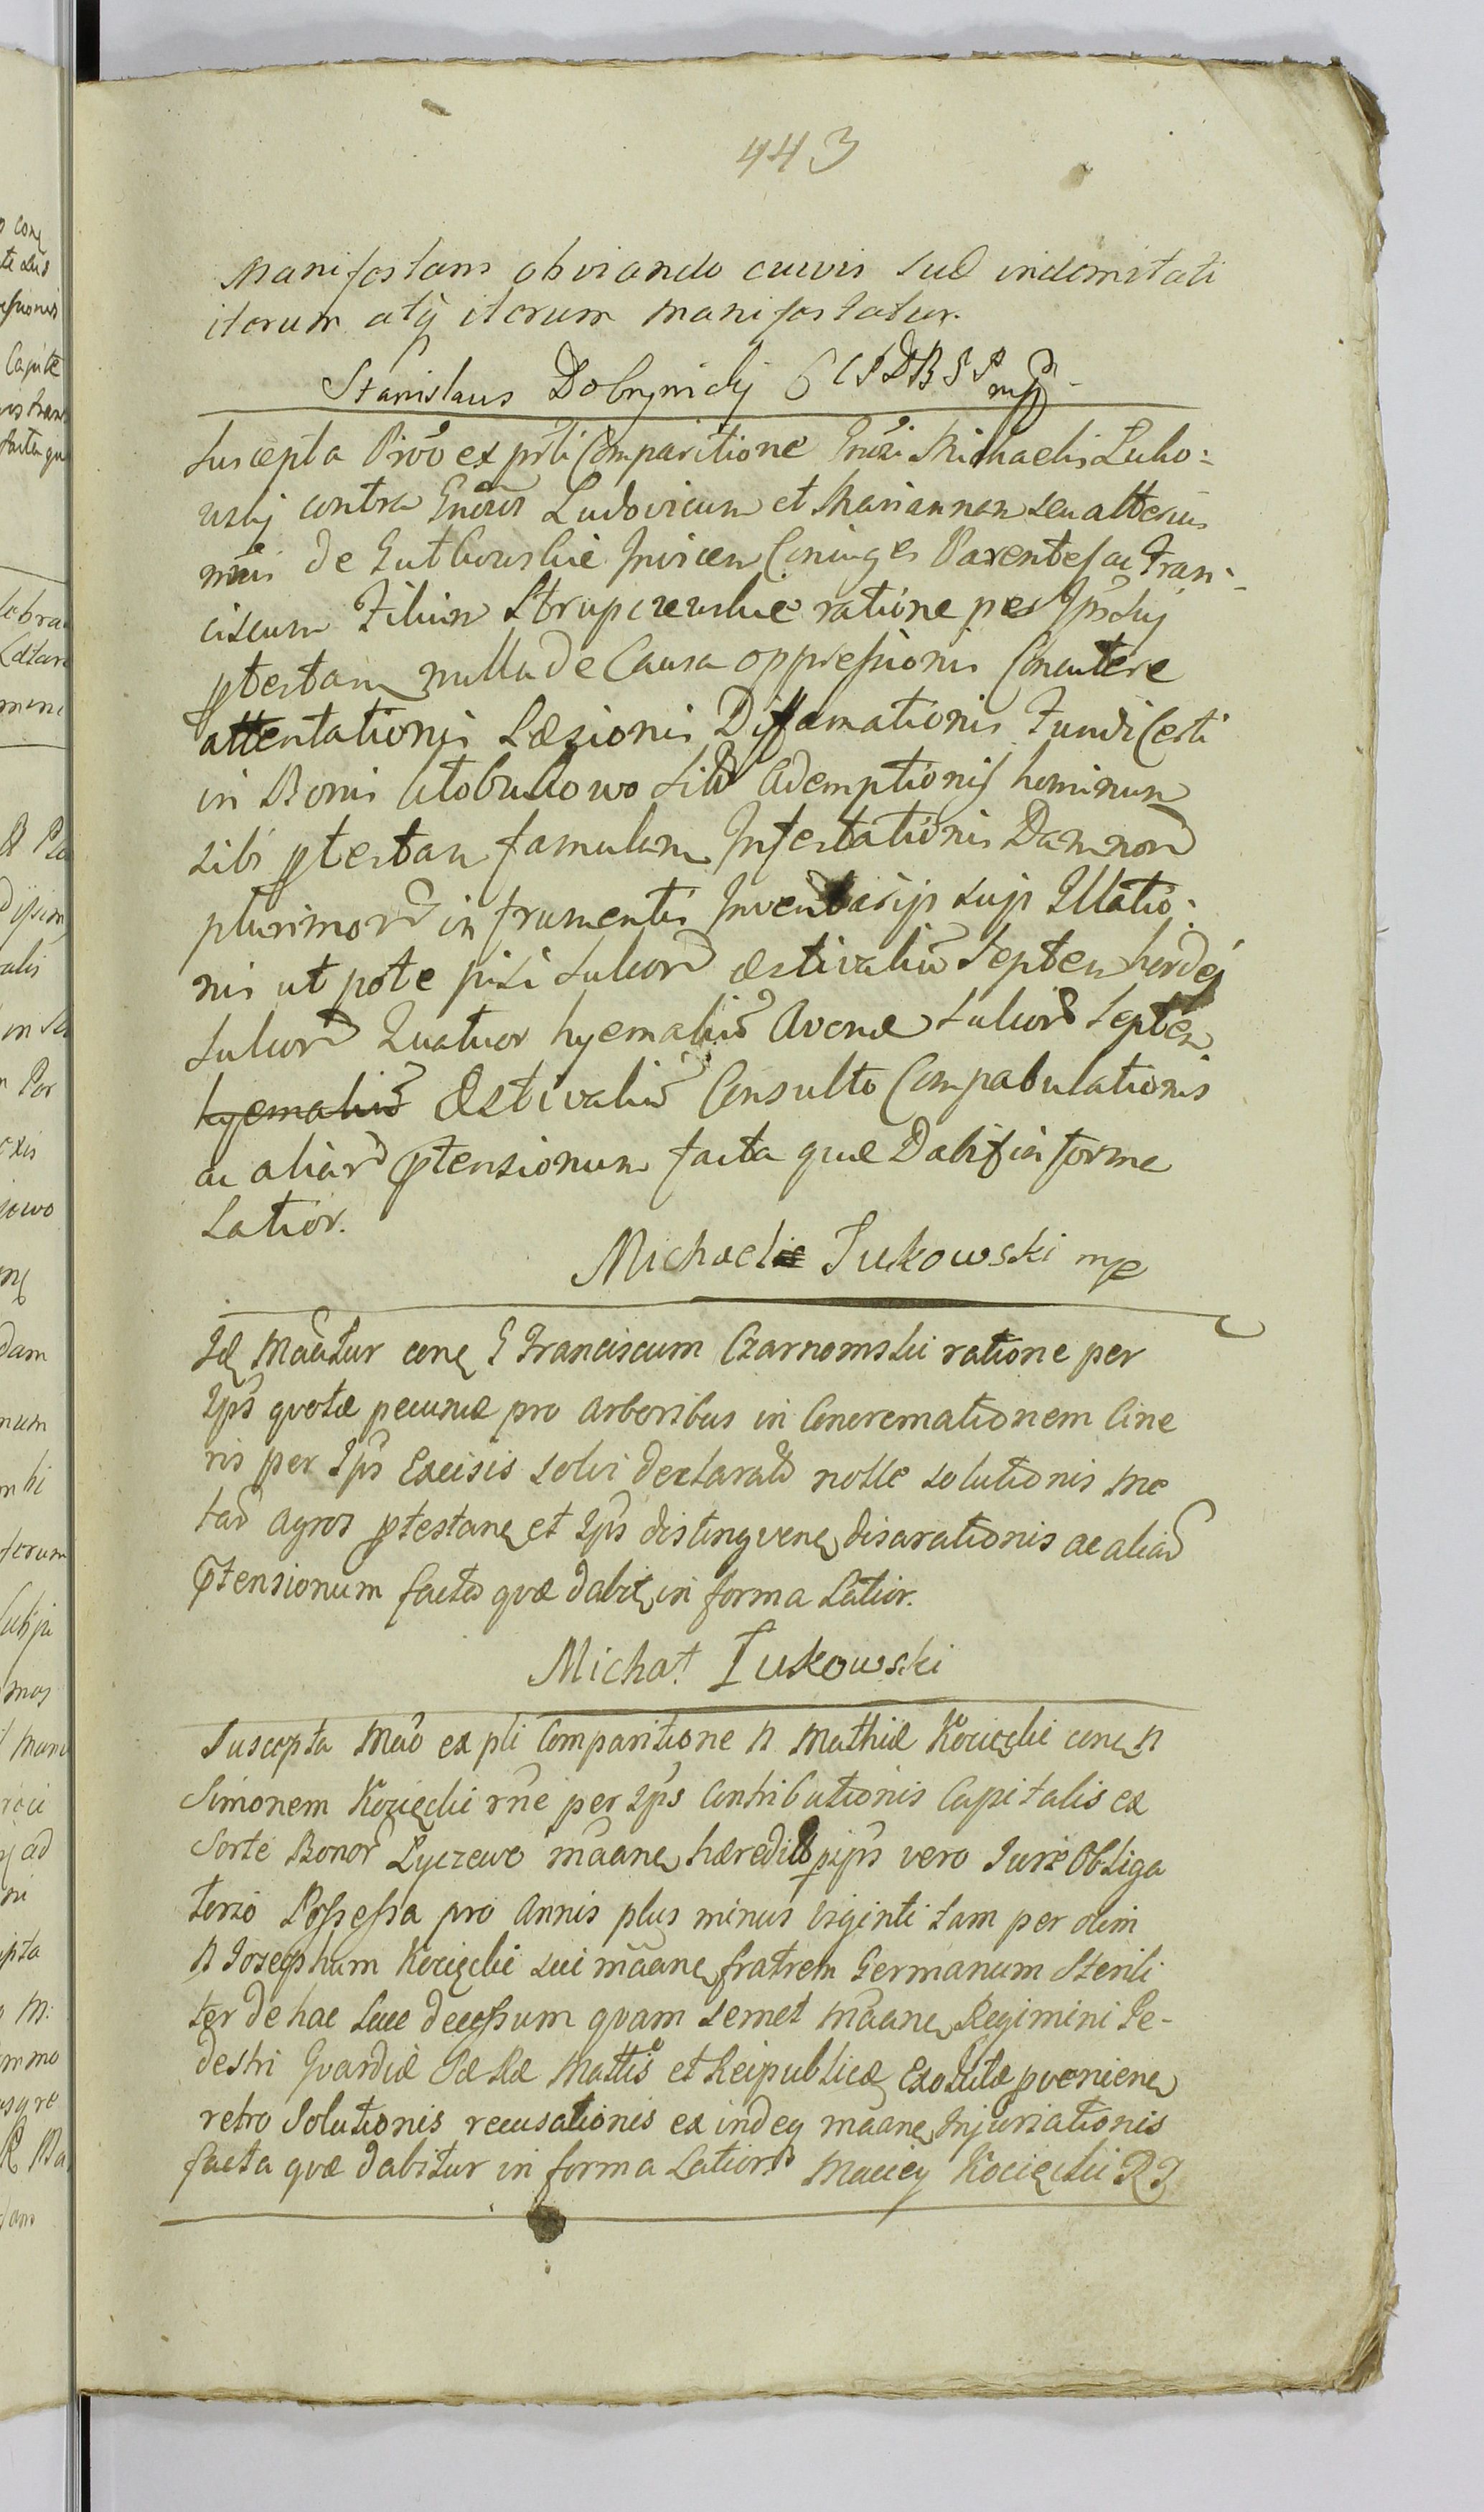 443
Manifestans obviando cuivis suæ indemnitati
iterum atq iterum manifestatur.
Stanislaus Dobrynicky
Suscepta Prõõ ex pñti Comparitione Gnõsi Michaelis Luko:
wskj contra Gnõsos Ludovicum et Mariannam
de Gutkowskie Invicem Coniuges Parentes ac Fran:
ciscum Filium Strupczewskie ratione per Ipsos
ptestan nulla de Causa oppressionis Concutere
attentationis Læsionis Diffamationis Fundi Certi
in Bonis Ademptionis hominum
sibi ptestan famulan Infestationis Damnor
plurimor in frumentis Inventarijs sujs Illatio:
nis ut pote pisi sulcor æstivaliũ Septem hordej
Sulcor Quatuor hyemaliũ Avenæ sulcor Septem
hyemaliũ Æstivaliũ Consulto Compabulationis
ac aliar ptensionum facta quæ Dabit in forma
Latior.
Michael Łukowski mp
Id Mãtur con G Franciscum Czarnomskii ratione per
Ips quotæ pecuniæ pro arboribus in Concremationem Cine
ris per Ips Excisis solvi declarata nolle solutionis me
tar agros ptestan et Ips distingven disarationis ac aliar
Ptensionum facta quæ dabit in forma Latior.
Michał Łukowski
Suscepta Mão ex pti Comparitione N Mathiæ Kocięcki con N
Simonem Kocięcki rne per Ips Contributionis Capitalis ex
Sorte Bonor Lyczewo mãan hæredit p ips vero Jure Obliga
torio Possessa pro Annis plus minus viginti tam per olim
N Josephum Kocięcki sui mãan fratrem Germanum Sterili
ter de hac luce decessum quam semet mãan Regimini Pe-
destri Gvardiæ Sæ Ræ Mattis et Reipublicæ Exolutæ pvenien
retro Solutionis recusationis ex indeq mãan Injuriationis
facta quæ dabitur in forma Latiori Maciey Kocięcki